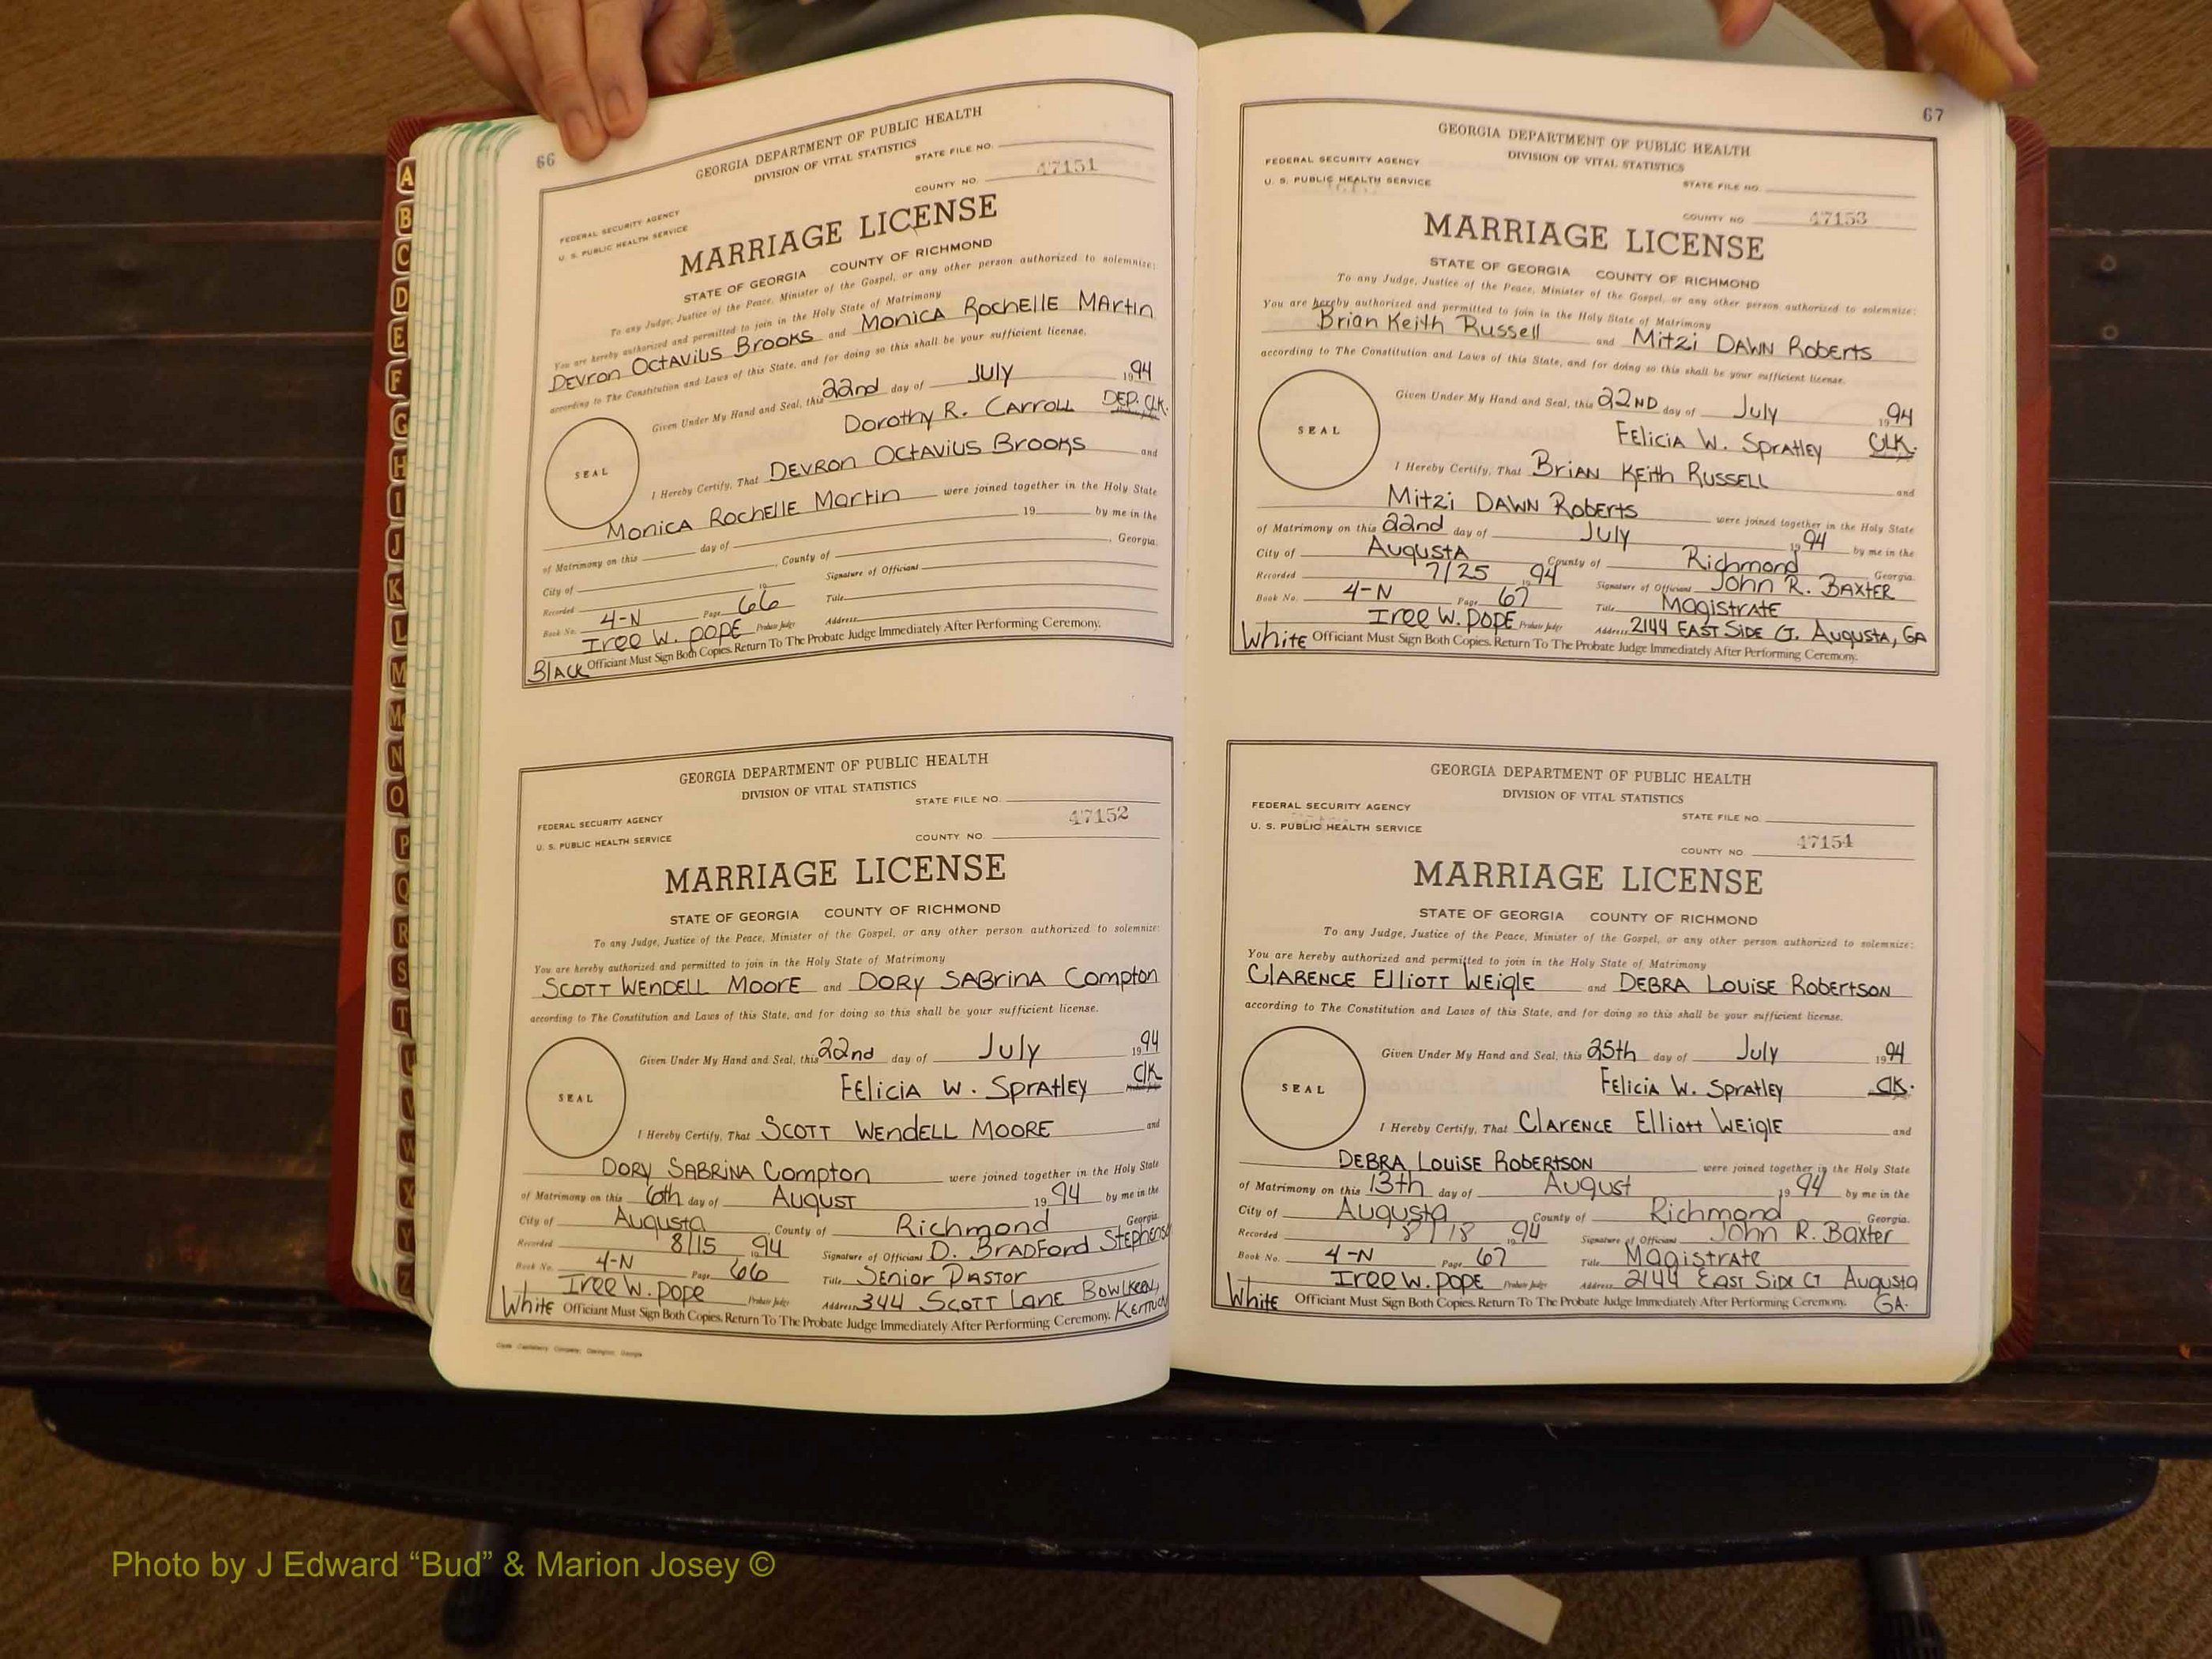 66
GEORGIA DEPARTMENT OF PUBLIC HEALTH
DIVISION OF VITAL STATISTICS
STATE FILE NO.
47151
COUNTY NO.
FEDERAL SECURITY AGENCY
U. S. PUBLIC HEALTH SERVICE
MARRIAGE LICENSE
STATE OF GEORGIA COUNTY OF RICHMOND
To any Judge, Justice of the Peace, Minister of the Gospel, or any other person authorized to solemnize:
You are hereby authorized and permitted to join in the Holy State of Matrimony
Devron Octavius Brooks and Monica Rochelle Martin
according to The Constitution and Laws of this State, and for doing so this shall be your sufficient license.
Given Under My Hand and Seal, this 22nd day of July 1994
Dorothy R. Carroll DEP. CLK.
SEAL
I Hereby Certify, That Devron Octavius Brooks and
Monica Rochelle Martin were joined together in the Holy State
of Matrimony on this day of 19 by me in the
City of , County of Georgia.
Recorded 19 Signature of Officiant
Book No. 4-N Page 66 Title
Iree W. Pope Probate Judge Address
Black Officiant Must Sign Both Copies. Return To The Probate Judge Immediately After Performing Ceremony.
GEORGIA DEPARTMENT OF PUBLIC HEALTH
DIVISION OF VITAL STATISTICS
STATE FILE NO.
47152
FEDERAL SECURITY AGENCY
U. S. PUBLIC HEALTH SERVICE
COUNTY NO.
MARRIAGE LICENSE
STATE OF GEORGIA COUNTY OF RICHMOND
To any Judge, Justice of the Peace, Minister of the Gospel, or any other person authorized to solemnize:
You are hereby authorized and permitted to join in the Holy State of Matrimony
Scott Wendell Moore and Dory Sabrina Compton
according to The Constitution and Laws of this State, and for doing so this shall be your sufficient license.
Given Under My Hand and Seal, this 22nd day of July 1994
Felicia W. Spratley Clk
SEAL
I Hereby Certify, That Scott Wendell Moore and
Dory Sabrina Compton were joined together in the Holy State
of Matrimony on this 6th day of August 1994 by me in the
City of Augusta County of Richmond Georgia.
Recorded 8/15 1994 Signature of Officiant D. Bradford Stephens
Book No. 4-N Page 66 Title Senior Pastor
Iree W. Pope Probate Judge Address 344 Scott Lane
White Officiant Must Sign Both Copies. Return To The Probate Judge Immediately After Performing Ceremony.
67
GEORGIA DEPARTMENT OF PUBLIC HEALTH
DIVISION OF VITAL STATISTICS
FEDERAL SECURITY AGENCY
U. S. PUBLIC HEALTH SERVICE
STATE FILE NO.
COUNTY NO 47153
MARRIAGE LICENSE
STATE OF GEORGIA COUNTY OF RICHMOND
To any Judge, Justice of the Peace, Minister of the Gospel, or any other person authorized to solemnize:
You are hereby authorized and permitted to join in the Holy State of Matrimony
Brian Keith Russell and Mitzi Dawn Roberts
according to The Constitution and Laws of this State, and for doing so this shall be your sufficient license.
Given Under My Hand and Seal, this 22ND day of July 1994
Felicia W. Spratley CLK.
SEAL
I Hereby Certify, That Brian Keith Russell and
Mitzi Dawn Roberts were joined together in the Holy State
of Matrimony on this 22nd day of July 1994 by me in the
City of Augusta County of Richmond Georgia.
Recorded 7/25 1994 Signature of Officiant John R. Baxter
Book No. 4-N Page 67 Title Magistrate
Iree W. Pope Probate Judge Address 2144 East Side Ct. Augusta, GA
White Officiant Must Sign Both Copies. Return To The Probate Judge Immediately After Performing Ceremony.
GEORGIA DEPARTMENT OF PUBLIC HEALTH
DIVISION OF VITAL STATISTICS
FEDERAL SECURITY AGENCY
U. S. PUBLIC HEALTH SERVICE
STATE FILE NO.
47154
COUNTY NO
MARRIAGE LICENSE
STATE OF GEORGIA COUNTY OF RICHMOND
To any Judge, Justice of the Peace, Minister of the Gospel, or any other person authorized to solemnize:
You are hereby authorized and permitted to join in the Holy State of Matrimony
Clarence Elliott Weigle and Debra Louise Robertson
according to The Constitution and Laws of this State, and for doing so this shall be your sufficient license.
Given Under My Hand and Seal, this 25th day of July 1994
Felicia W. Spratley Clk.
SEAL
I Hereby Certify, That Clarence Elliott Weigle and
Debra Louise Robertson were joined together in the Holy State
of Matrimony on this 13th day of August 1994 by me in the
City of Augusta County of Richmond Georgia.
Recorded 8/18 1994 Signature of Officiant John R. Baxter
Book No. 4-N Page 67 Title Magistrate
Iree W. Pope Probate Judge Address 2144 East Side Ct Augusta
White Officiant Must Sign Both Copies. Return To The Probate Judge Immediately After Performing Ceremony. GA.
A
B
C
D
E
F
G
H
I
J
K
L
M
Mc
N
O
P
Q
R
S
T
U
V
W
X
Y
Z
Photo by J Edward “Bud” & Marion Josey ©